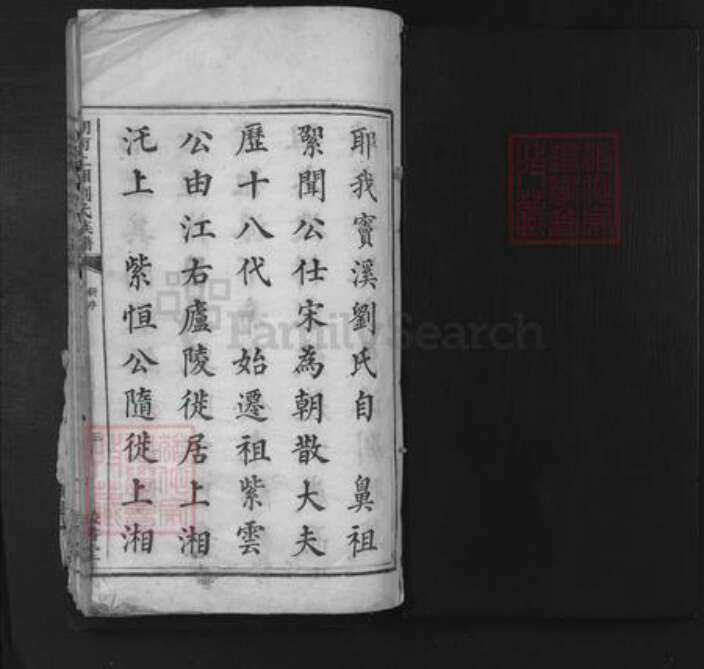 耶我寶溪劉氏自　鼻祖
綮聞公仕宋為朝散大夫
歷十八代　始遷祖紫雲
公由江右廬陵徙居上湘
汑上　紫恒公隨徙上湘
新序
FamilySearch